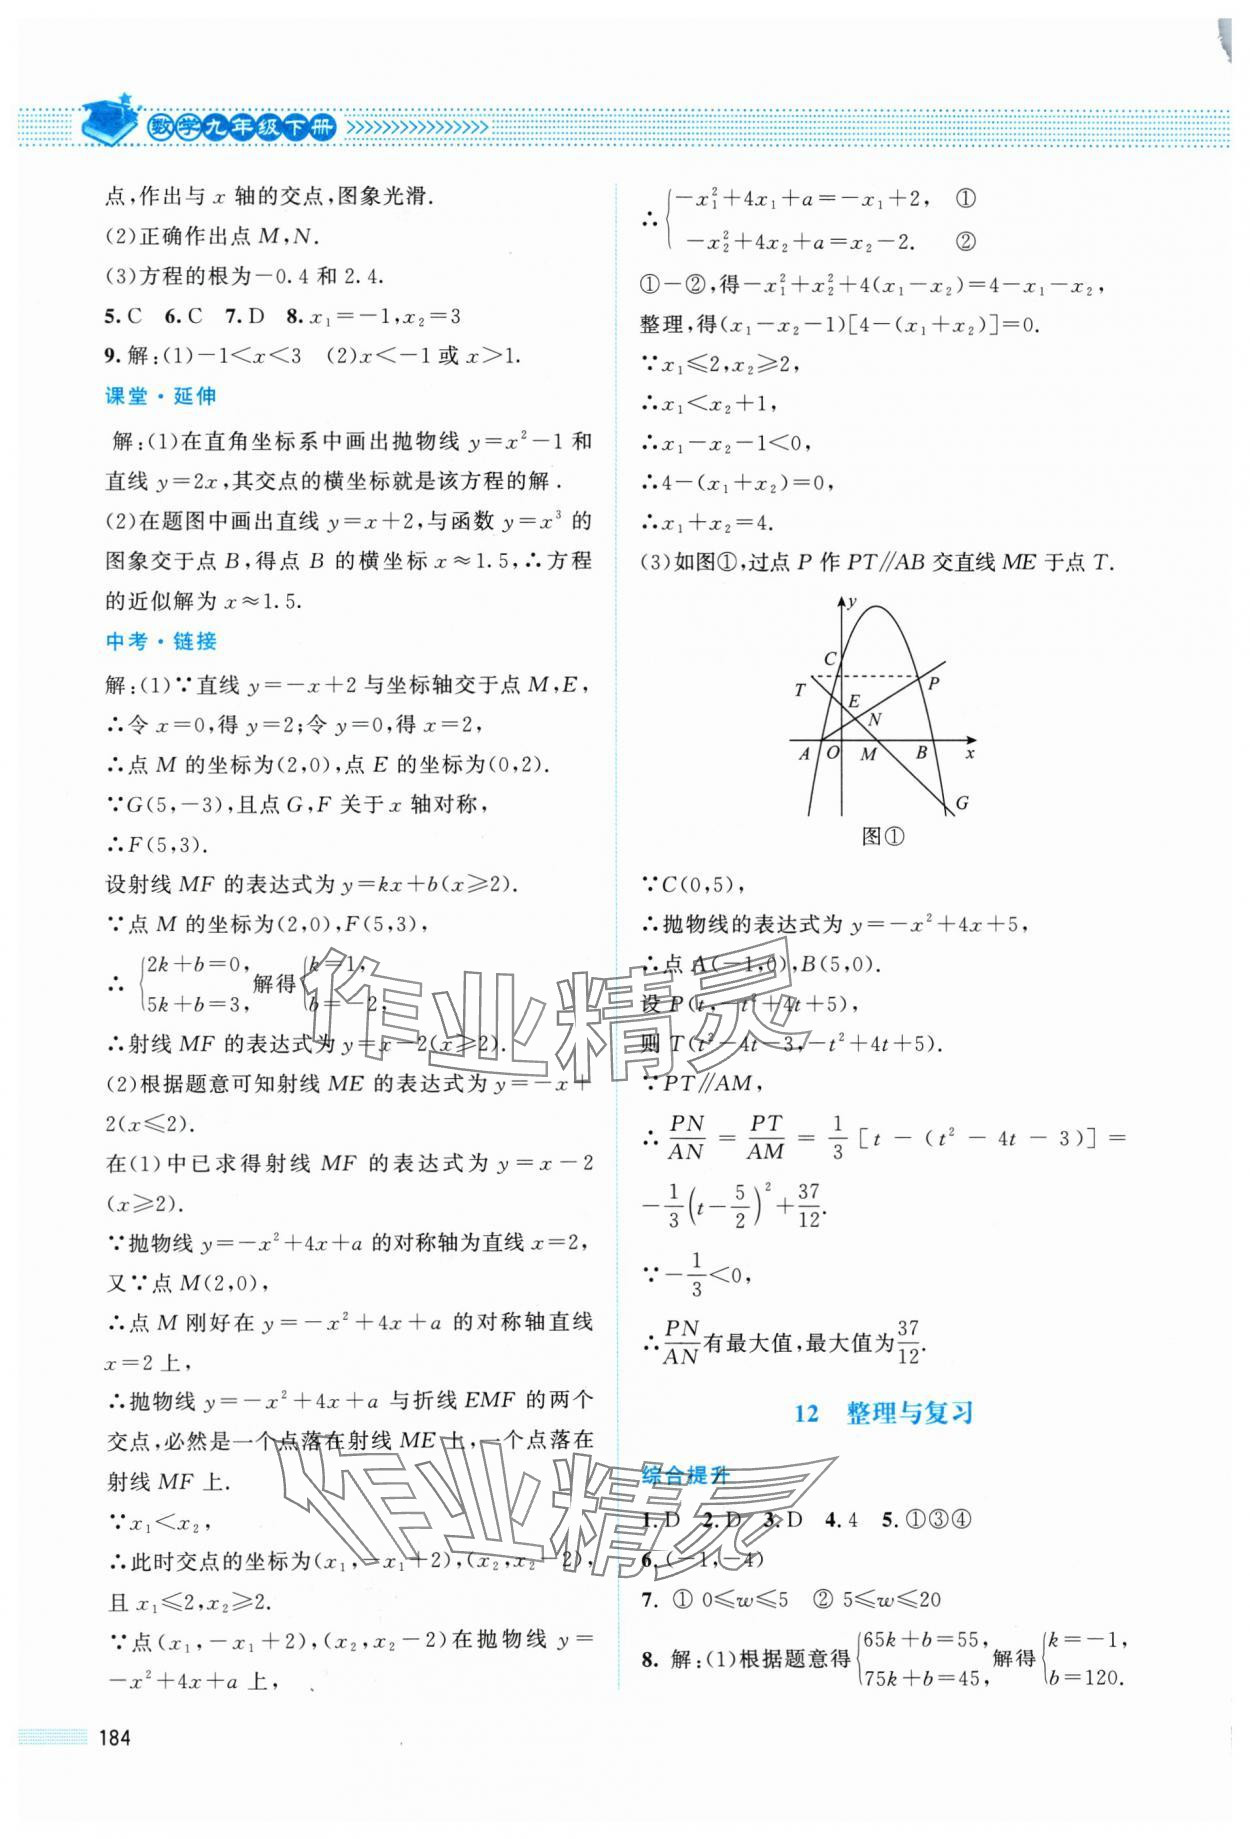 数学九年级下册
点,作出与 x 轴的交点,图象光滑.
(2)正确作出点 M,N.
(3)方程的根为-0.4 和 2.4.
5. C 6. C 7. D 8. x₁=-1,x₂=3
9. 解:(1)-1<x<3 (2)x<-1 或 x>1.
课堂·延伸
解:(1)在直角坐标系中画出抛物线 y=x²-1 和
直线 y=2x,其交点的横坐标就是该方程的解.
(2)在题图中画出直线 y=x+2,与函数 y=x³ 的
图象交于点 B,得点 B 的横坐标 x≈1.5,∴方程
的近似解为 x≈1.5.
中考·链接
解:(1)∵直线 y=-x+2 与坐标轴交于点 M,E,
∴令 x=0,得 y=2;令 y=0,得 x=2,
∴点 M 的坐标为(2,0),点 E 的坐标为(0,2).
∵G(5,-3),且点 G,F 关于 x 轴对称,
∴F(5,3).
设射线 MF 的表达式为 y=kx+b(x≥2).
∵点 M 的坐标为(2,0),F(5,3),
∴ {2k+b=0, 5k+b=3, 解得 {k=1, b=-2,
∴射线 MF 的表达式为 y=x-2(x≥2).
(2)根据题意可知射线 ME 的表达式为 y=-x+
2(x≤2).
在(1)中已求得射线 MF 的表达式为 y=x-2
(x≥2).
∵抛物线 y=-x²+4x+a 的对称轴为直线 x=2,
又∵点 M(2,0),
∴点 M 刚好在 y=-x²+4x+a 的对称轴直线
x=2 上,
∴抛物线 y=-x²+4x+a 与折线 EMF 的两个
交点,必然是一个点落在射线 ME 上,一个点落在
射线 MF 上.
∵x₁<x₂,
∴此时交点的坐标为(x₁,-x₁+2),(x₂,x₂-2),
且 x₁≤2,x₂≥2.
∵点(x₁,-x₁+2),(x₂,x₂-2)在抛物线 y=
-x²+4x+a 上,
∴ {-x₁²+4x₁+a=-x₁+2, ①
-x₂²+4x₂+a=x₂-2. ②
①-②,得-x₁²+x₂²+4(x₁-x₂)=4-x₁-x₂,
整理,得(x₁-x₂-1)[4-(x₁+x₂)]=0.
∵x₁≤2,x₂≥2,
∴x₁<x₂+1,
∴x₁-x₂-1<0,
∴4-(x₁+x₂)=0,
∴x₁+x₂=4.
(3)如图①,过点 P 作 PT∥AB 交直线 ME 于点 T.
y
C
T
P
E
N
A O M B x
G
图①
∵C(0,5),
∴抛物线的表达式为 y=-x²+4x+5,
∴点 A(-1,0),B(5,0).
设 P(t,-t²+4t+5),
则 T(t²-4t-3,-t²+4t+5).
∵PT∥AM,
∴ PN/AN = PT/AM = 1/3 [t-(t²-4t-3)]=
-1/3(t-5/2)²+37/12.
∵-1/3<0,
∴PN/AN有最大值,最大值为37/12.
12 整理与复习
综合提升
1. D 2. D 3. D 4. 4 5. ①③④
6. (-1,-4)
7. ① 0≤w≤5 ② 5≤w≤20
8. 解:(1)根据题意得 {65k+b=55, 75k+b=45, 解得 {k=-1, b=120.
184
作业精灵
作业精灵